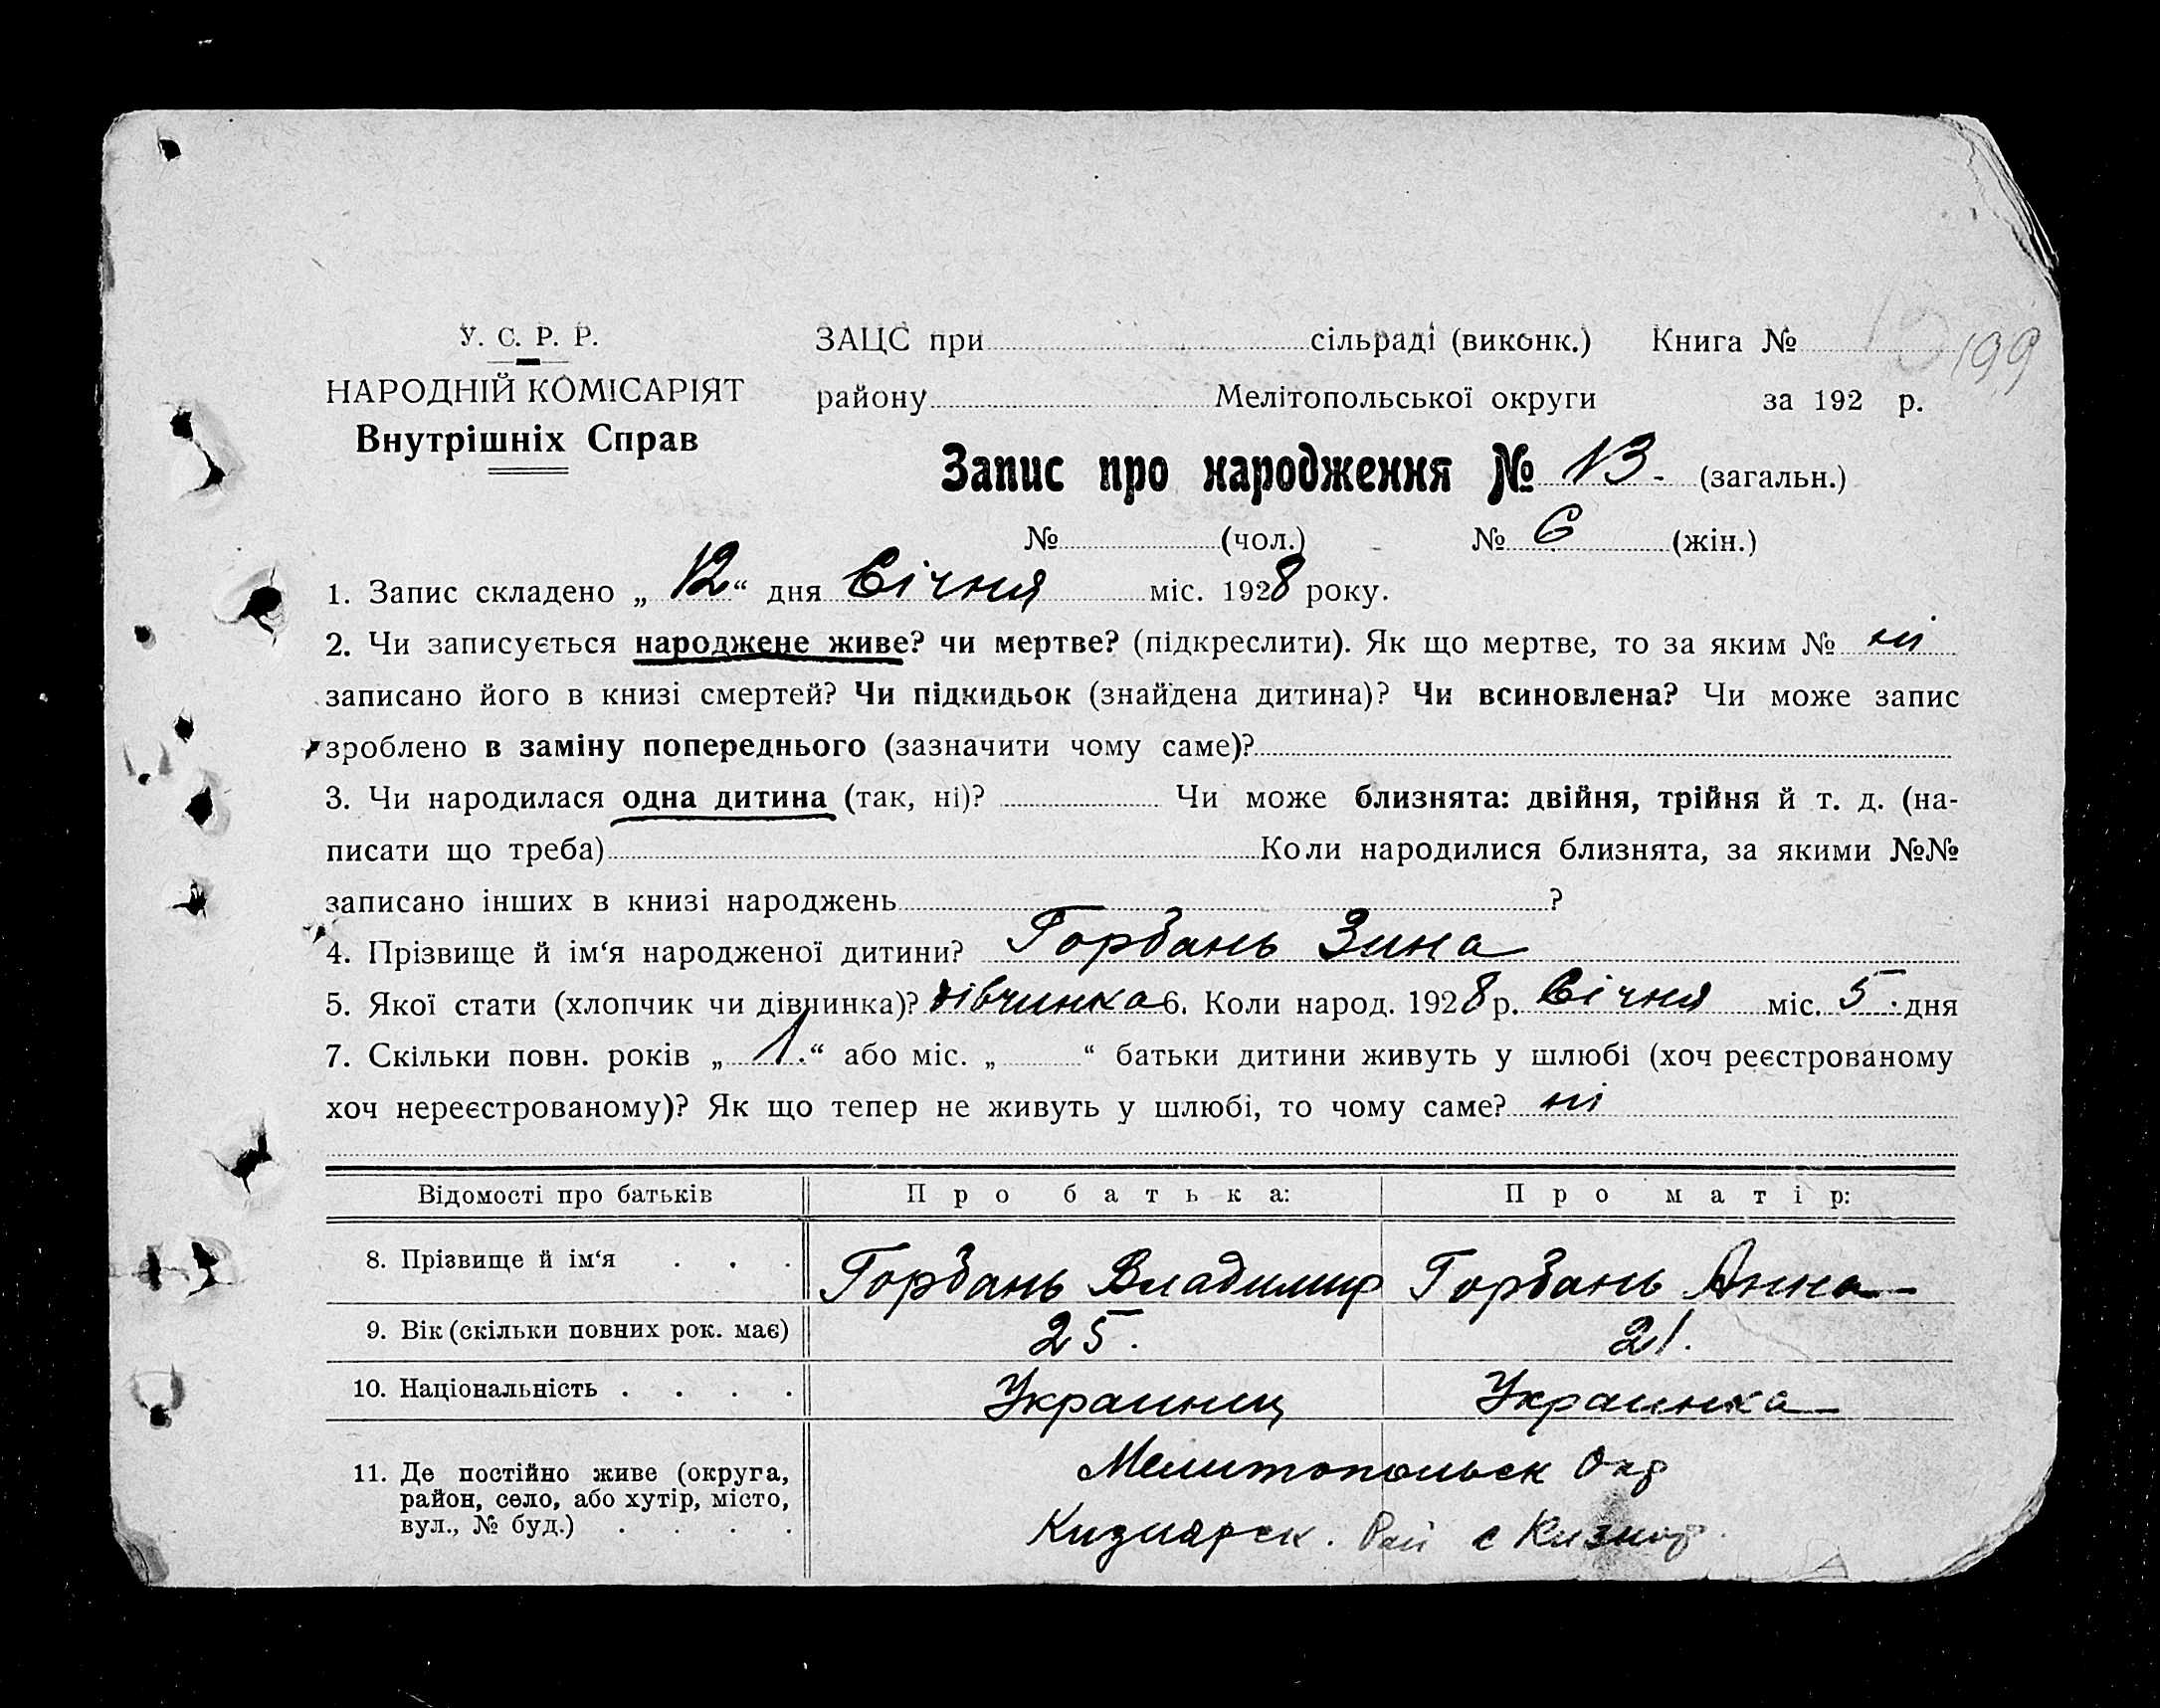 У. С. Р. Р.
НАРОДНІЙ КОМІСАРІЯТ
Внутрішніх Справ
ЗАЦС при сільраді (виконк.) Книга № 199
району Мелітопольської округи за 192 р.
Запис про народження № 13 - (загальн.)
№ (чол.) № 6 (жін.)
1. Запис складено „ 12 “ дня Січня міс. 1928 року.
2. Чи записується народжене живе? чи мертве? (підкреслити). Як що мертве, то за яким № ні
записано його в книзі смертей? Чи підкидьок (знайдена дитина)? Чи всиновлена? Чи може запис
зроблено в заміну попереднього (зазначити чому саме)?
3. Чи народилася одна дитина (так, ні)? Чи може близнята: двійня, трійня й т. д. (на-
писати що треба) Коли народилися близнята, за якими №№
записано інших в книзі народжень ?
4. Прізвище й ім‘я народженої дитини? Горбань Зина
5. Якої стати (хлопчик чи дівчинка)? дівчинка 6. Коли народ. 1928 р. Січня міс. 5 дня
7. Скільки повн. років „ 1. “ або міс. „ “ батьки дитини живуть у шлюбі (хоч реєстрованому
хоч нереєстрованому)? Як що тепер не живуть у шлюбі, то чому саме? ні
Відомості про батьків Про батька: Про матір:
8. Прізвище й ім‘я . . . Горбань Владимир Горбань Анна
9. Вік (скільки повних рок. має) 25. 21.
10. Національність . . . . Украинец Украинка
11. Де постійно живе (округа,
район, село, або хутір, місто,
вул., № буд.) . . . .
Мелитопольск Окр
Кизиярск. Рай с Кизияр.